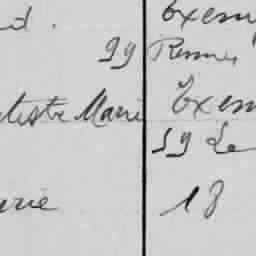 d. Exem
99 Rennes
tiste Marie Exem
59 Le
arie 18